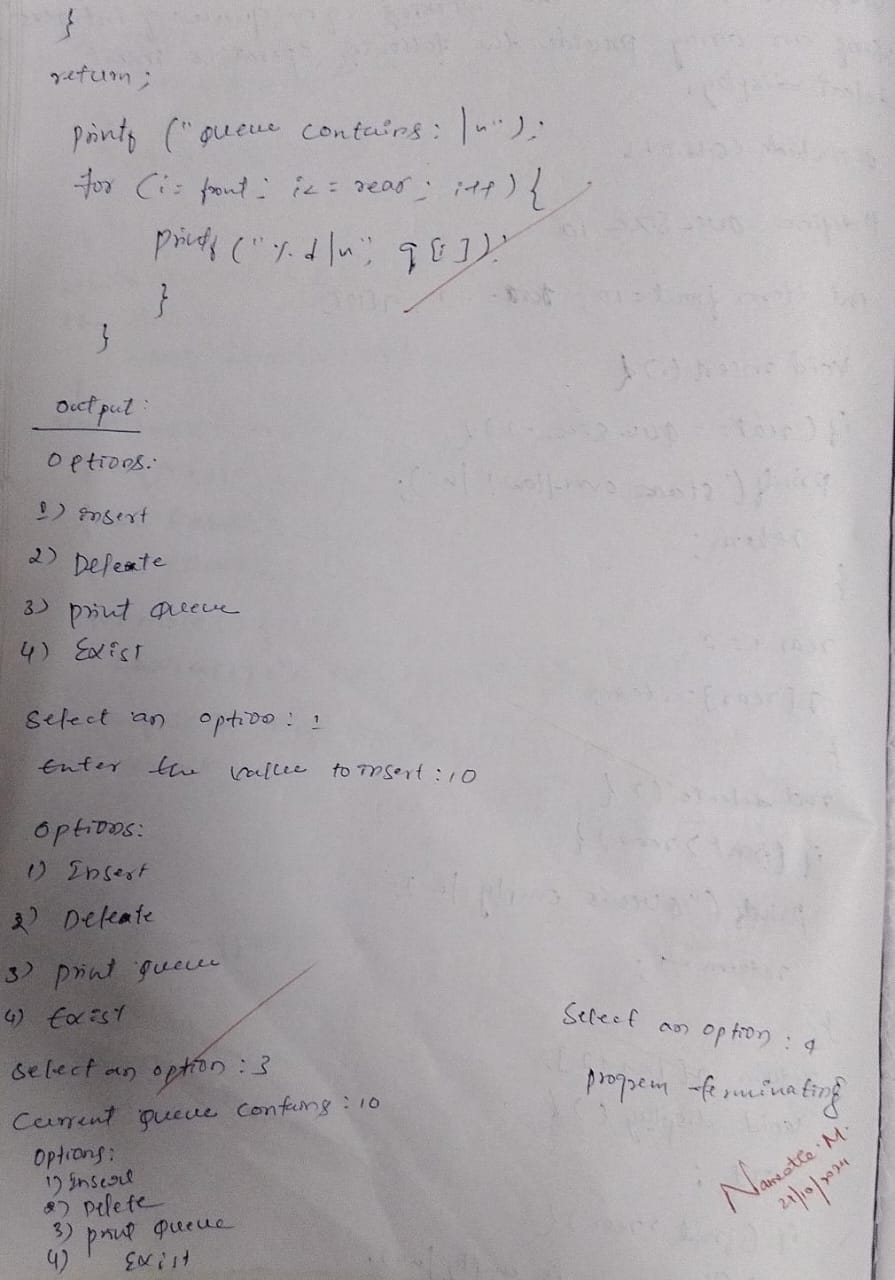 }
return;
printf ("queue contains: \n");
for (i= front; i<= rear; i++) {
printf ("%d\n", q[i]);
}
}
output:
Options:
1) Insert
2) Deleate
3) print queue
4) Exist
Select an option: 1
Enter the value to insert: 10
options:
1) Insert
2) Deleate
3) print queue
4) Exist
Select an option : 3
Current queue contains : 10
Options:
1) Insert
2) Delete
3) print queue
4) Exist
Select an option : 4
progrem terminating
21/10/2024